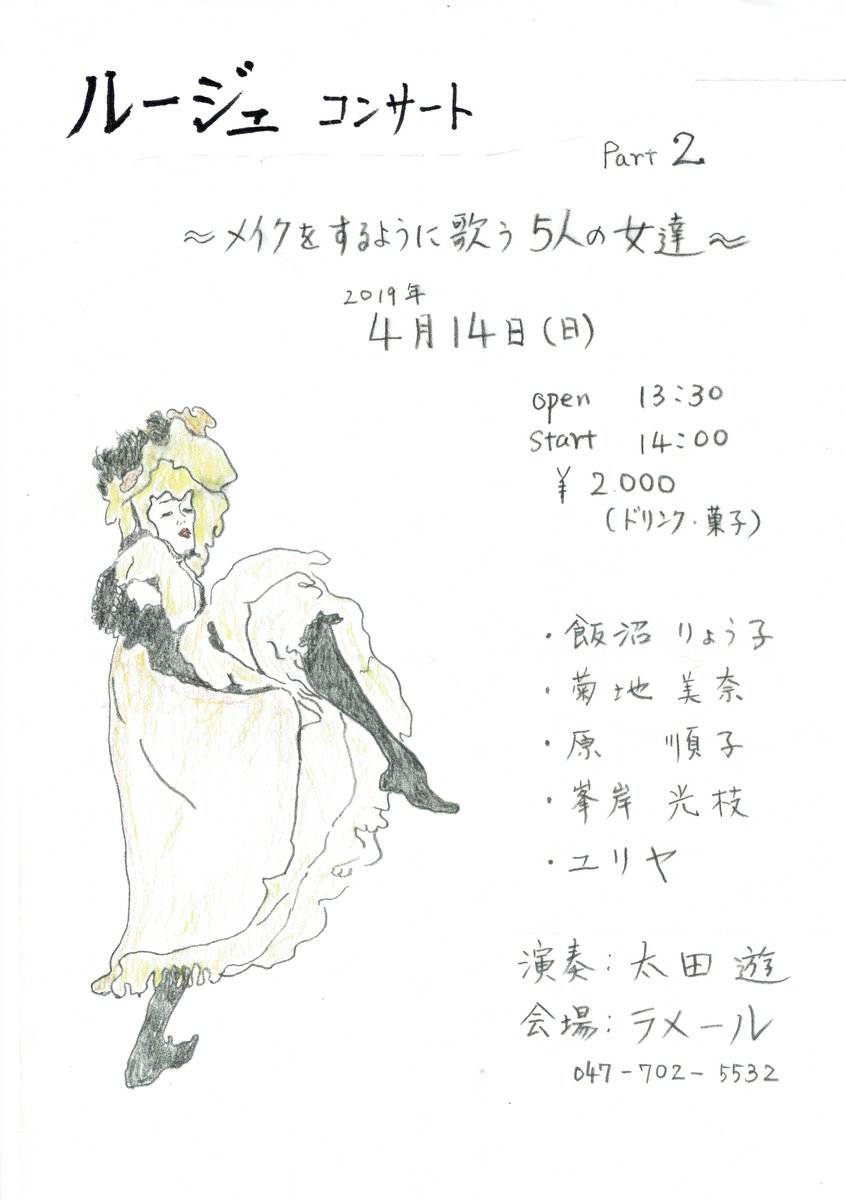 ルージュ コンサート
Part 2
~メイクをするように歌う 5人の女達~
2019年
4月14日(日)
open 13:30
start 14:00
¥2.000
(ドリンク・菓子)
・飯沼 りょう子
・菊地 美奈
・原 順子
・峯岸 光枝
・ユリヤ
演奏: 太田 遊
会場: ラメール
047-702-5532